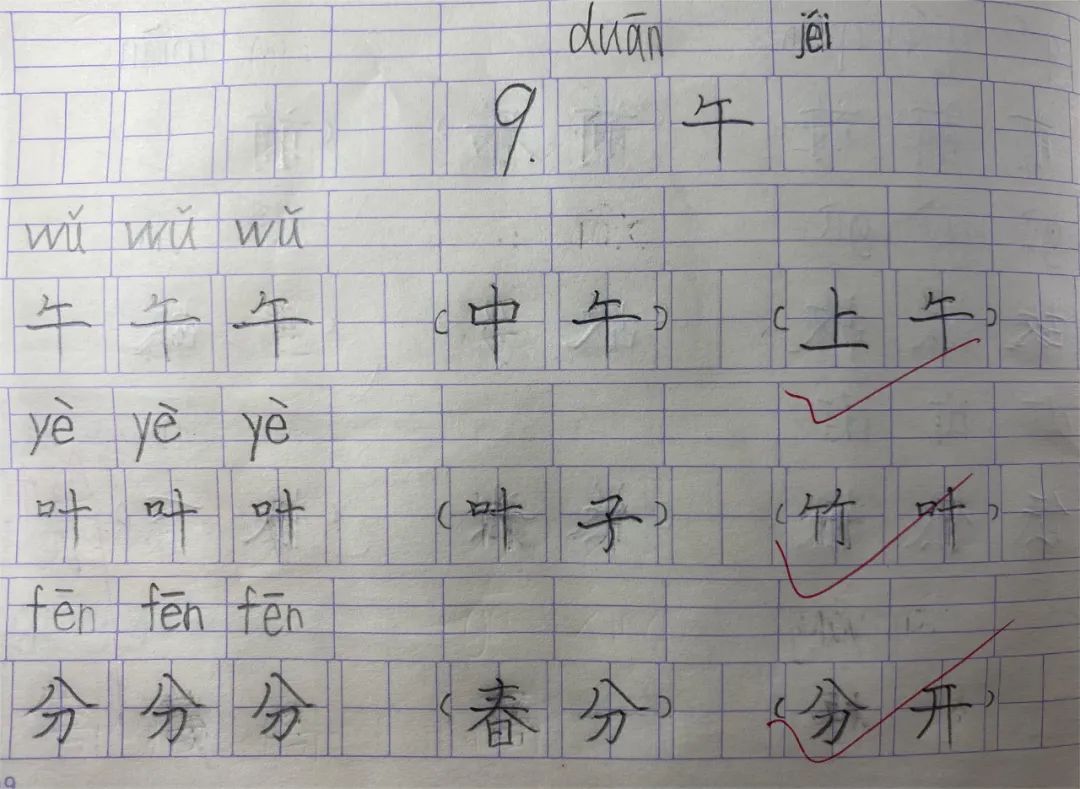 duān jiēi
9. 午
wǔ wǔ wǔ
午 午 午 (中午) (上午)
yè yè yè
叶 叶 叶 (叶子) (竹叶)
fēn fēn fēn
分 分 分 (春分) (分开)